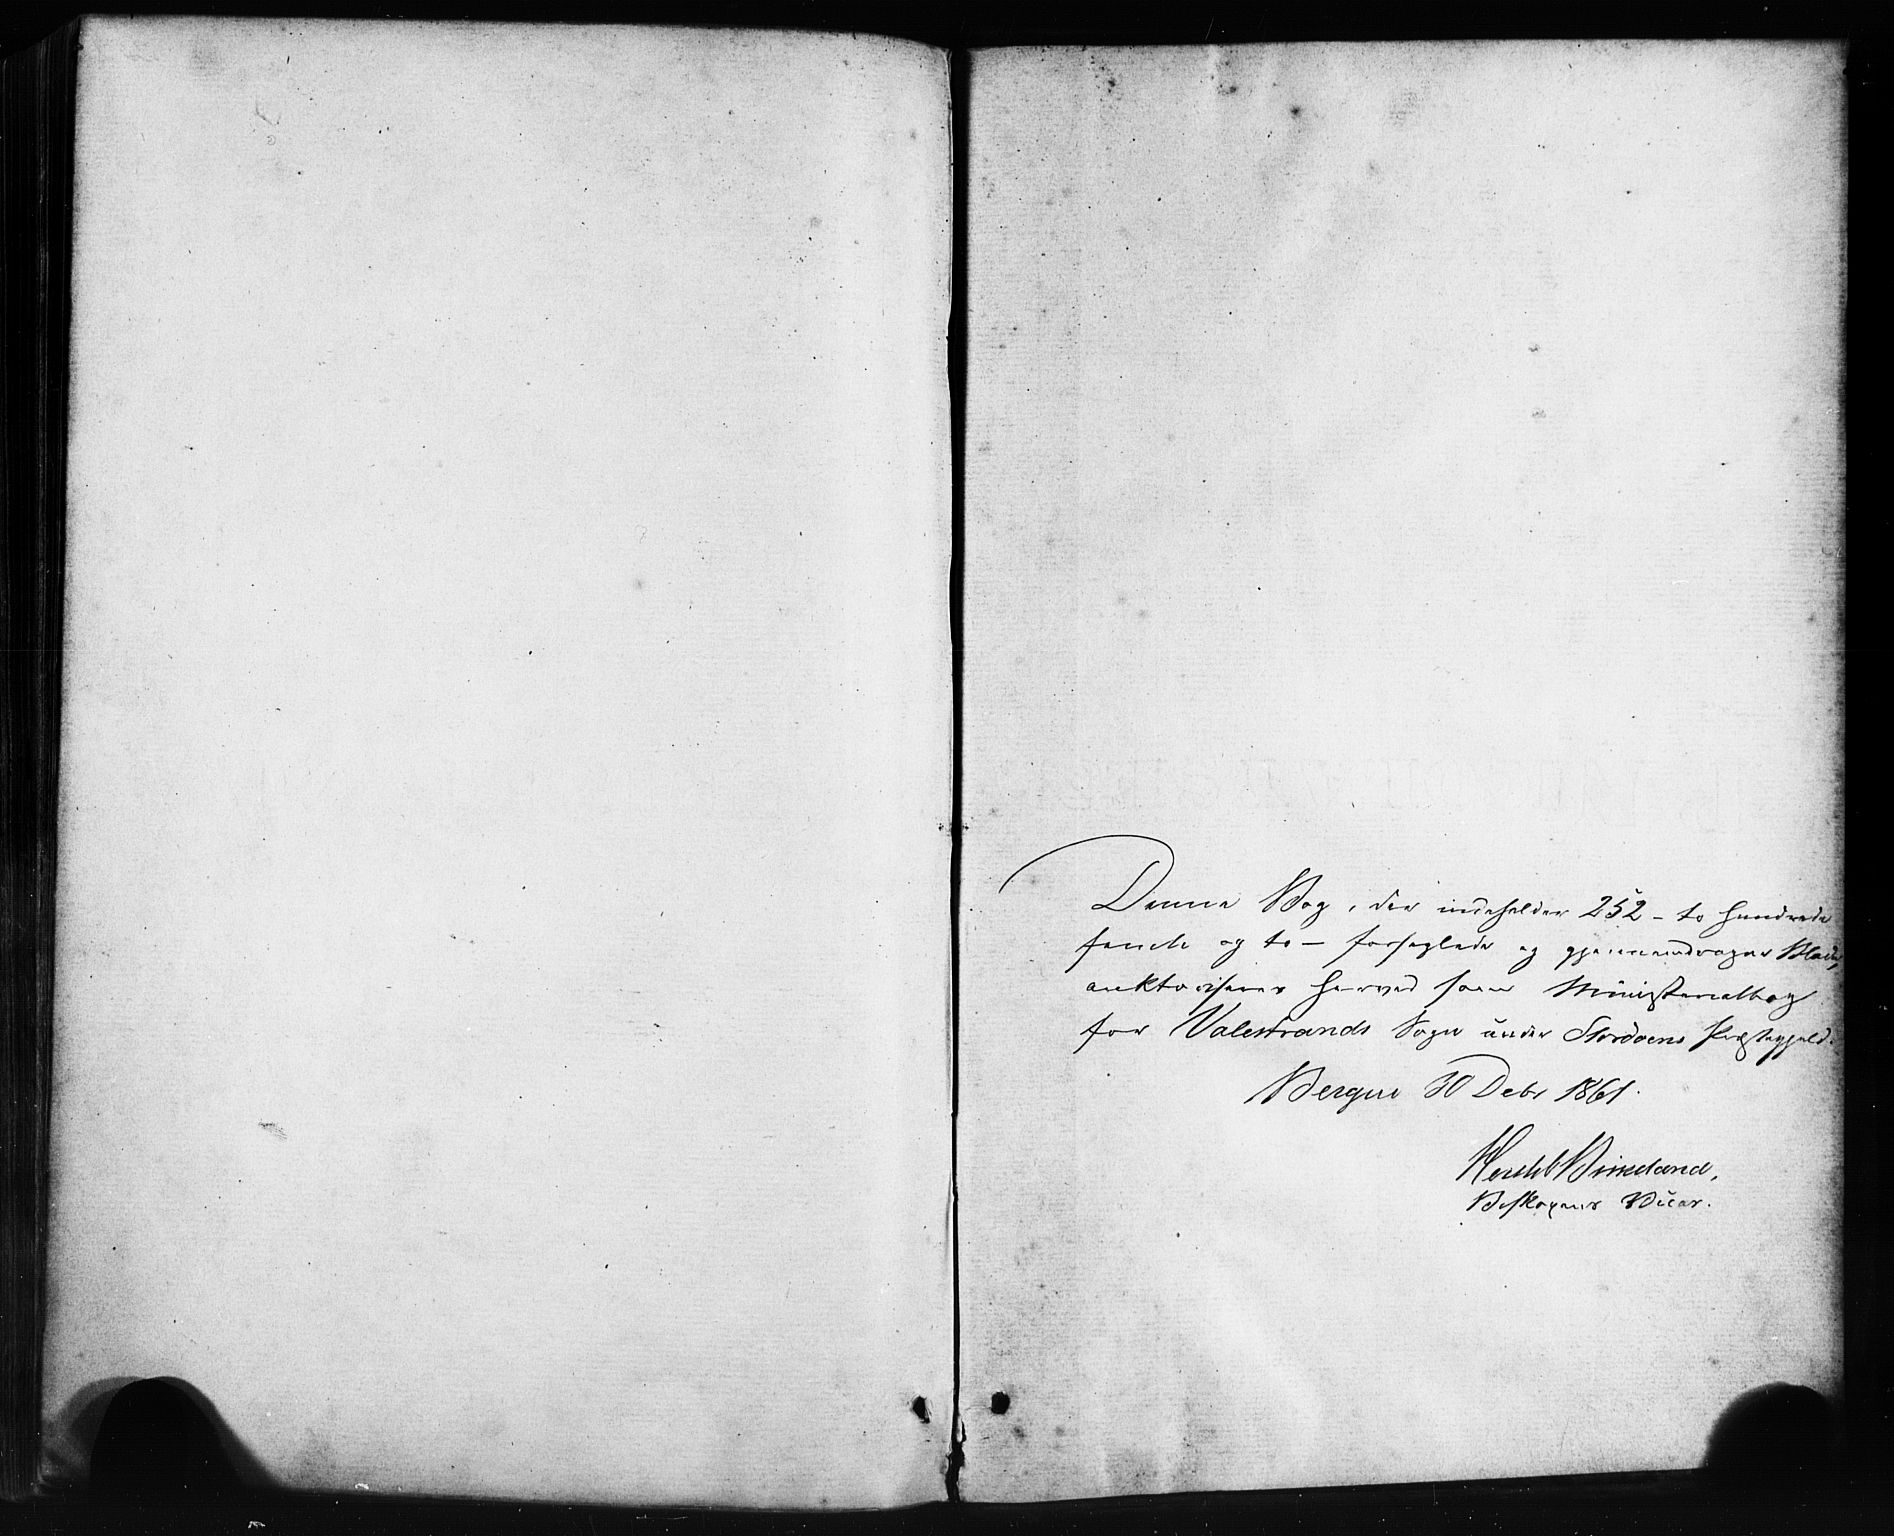 Denne Bog, der indeholder 252 - to hundrede
femti og to - forseglede og gjennemdragne Blade,
auktoriseres herved som Ministerialbog
for Valestrands Sogn under Stordøens Præstegjeld.
Bergen 30 Debr 1861.
Birkeland,
Biskopens Vicar.